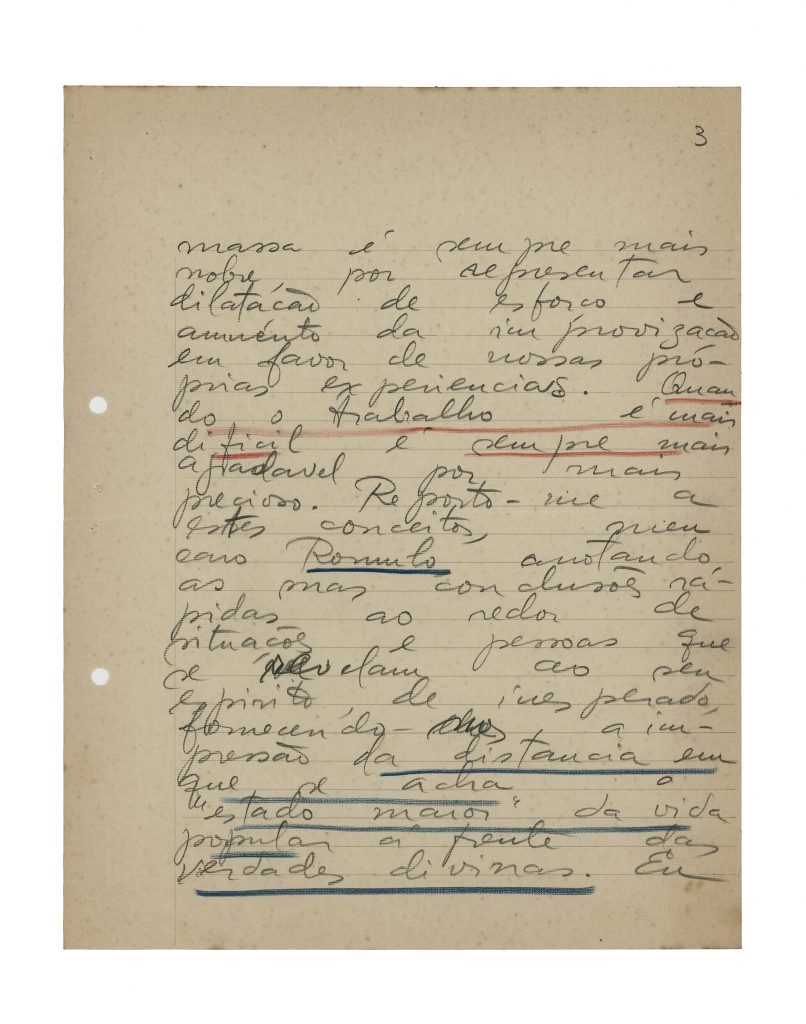 3
massa é sempre mais
nobre por representar
dilatácão de esforco e
aumento da improvização
em favor de nossas pró-
prias experiencias. Quan
do o trabalho é mais
dificil é sempre mais
agradavel por mais
precioso. Reporto-me a
estes conceitos, meu
caro Romulo, anotando
as suas conclusões rá-
pidas ao redor de
situações e pessoas que
se revelam ao seu
espirito, de inesperado,
fornecendo-nos a im-
pressão da distancia em
que se acha o
"estado maior" da vida
popular á frente das
verdades divinas. Eu